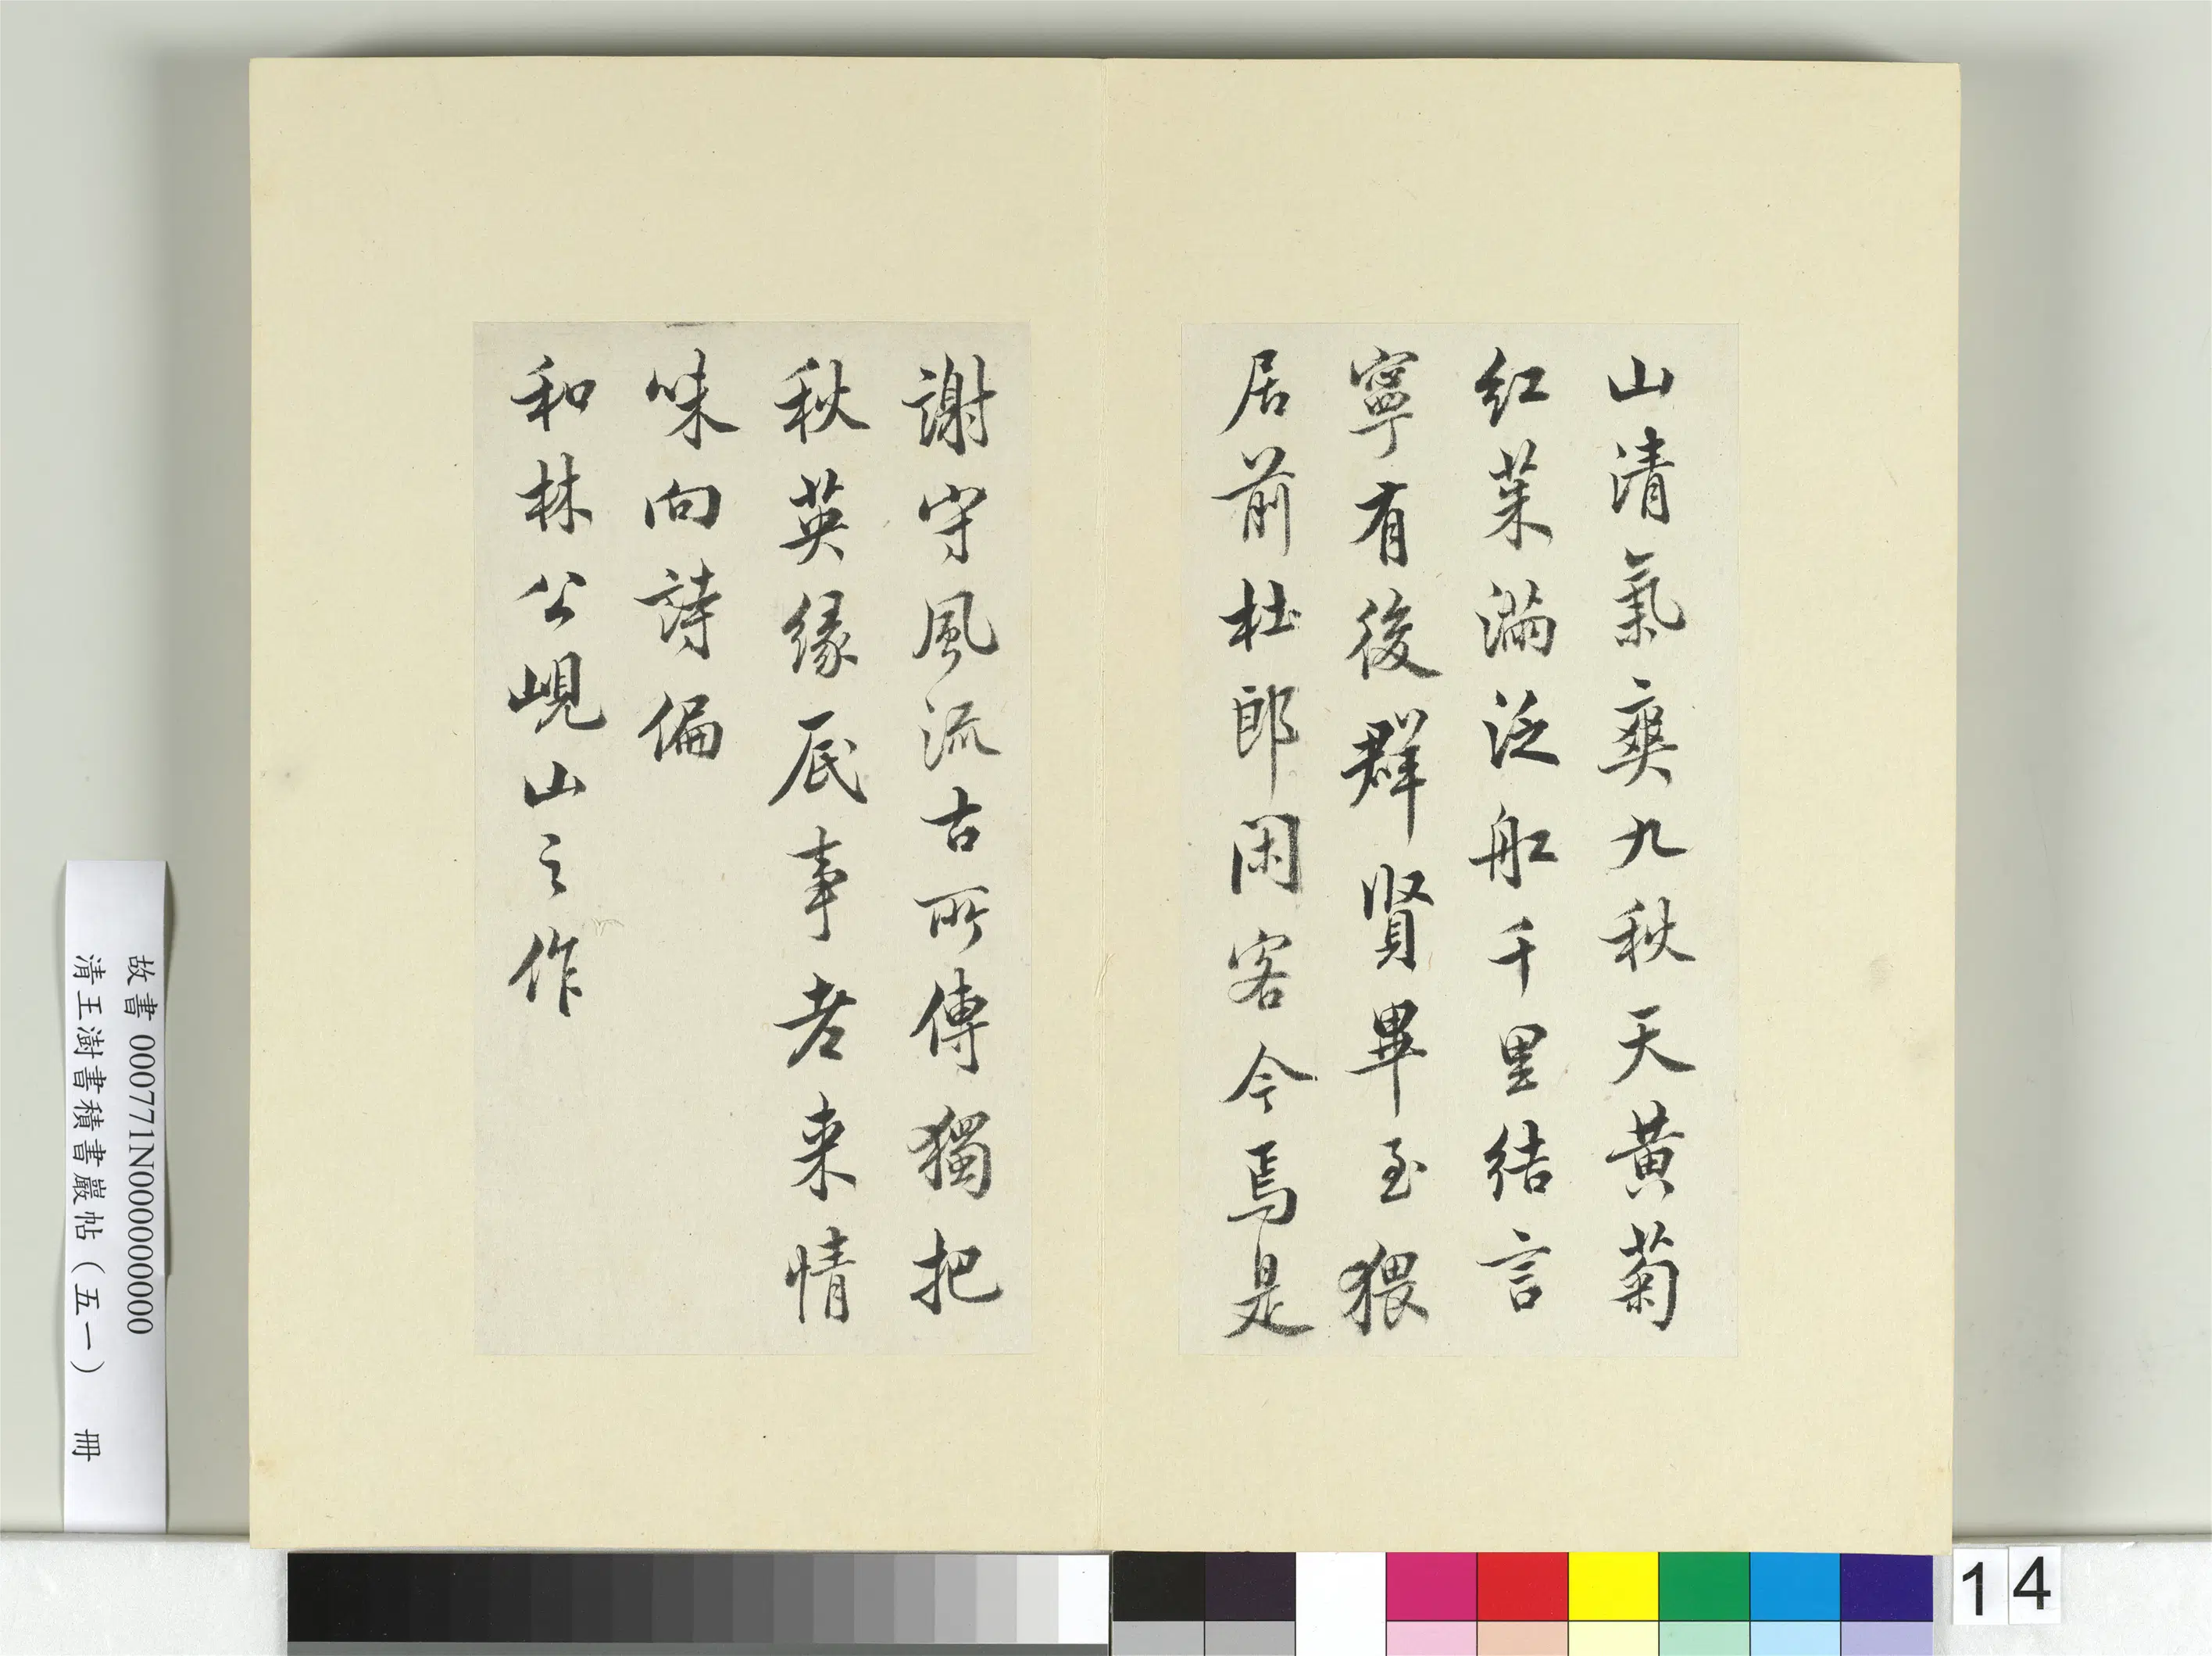 山清氣爽九秋天黃菊
紅茱滿泛船千里結言
寧有後群賢畢至猥
居前杜郎閑客今焉是
謝守風流古所傳獨把
秋英緣底事老來情
味向詩偏
和林公峴山之作
故書 000771N000000000
清王澍書積書巖帖（五一） 冊
14